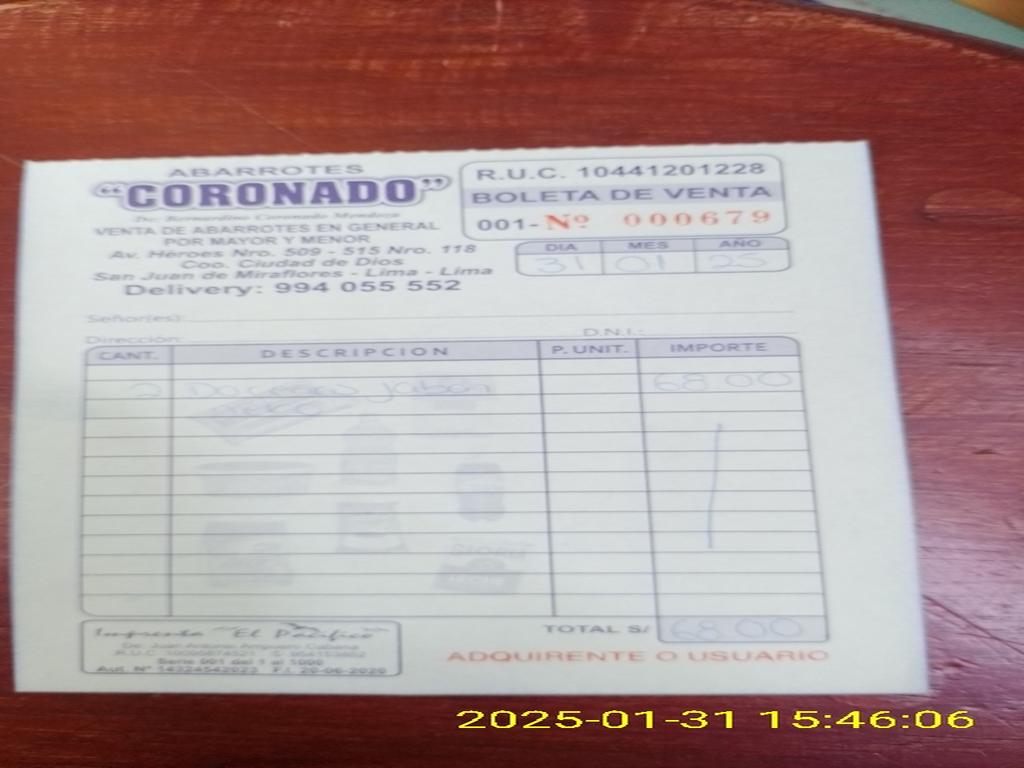 ABARROTES
"CORONADO"
De: Bernardino Coronado Mendoza
VENTA DE ABARROTES EN GENERAL
POR MAYOR Y MENOR
Av. Héroes Nro. 509 - 515 Nro. 118
Coo. Ciudad de Dios
San Juan de Miraflores - Lima - Lima
Delivery: 994 055 552
R.U.C. 10441201228
BOLETA DE VENTA
001- Nº 000679
DIA MES AÑO
31 01 25
Señor(es):
Dirección: D.N.I.:
CANT. DESCRIPCION P. UNIT. IMPORTE
2 Docenas Jabon 68.00
LECHE
TOTAL S/ 68.00
Imprenta "El Pacífico"
Serie 001 del 1 al 1000
Aut. Nº 14324542023 F.I. 20-06-2020
ADQUIRENTE O USUARIO
2025-01-31 15:46:06